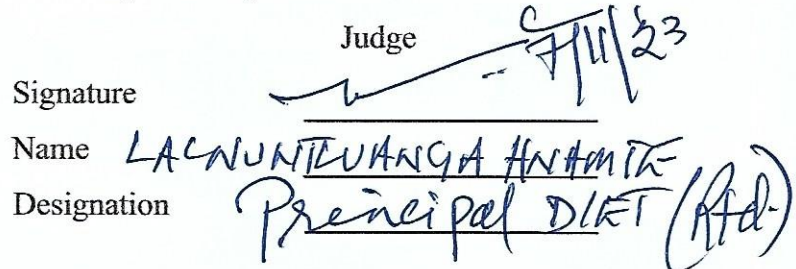 Judge
7/11/23
Signature
Name LALNUNTLUANGA HNAMTE
Designation Principal DIET (Rtd.)